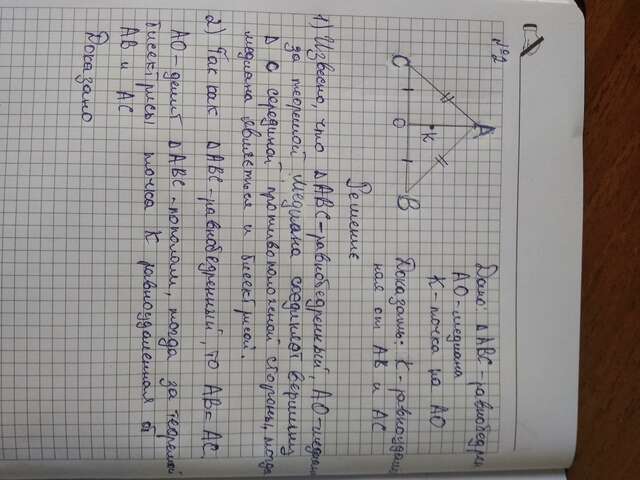 №2
Дано: △ABC - равнобедрен
AO - медиана
K - точка на AO
Доказать: K - равноудален
ная от AB и AC
C
O
K
A
B
Решение
1) Извесно, что △ABC - равнобедренный, AO - медиана
за теоремой медиана соединяет вершину
△ с серединой противоположной стороны, тогда
медиана являеться и биссектрисой.
2) Так как △ABC - равнобедренный, то AB = AC,
AO - делит △ABC - пополам, тогда за теоремой
бисектрисы точка K равноудаленная от
AB и AC
Доказано